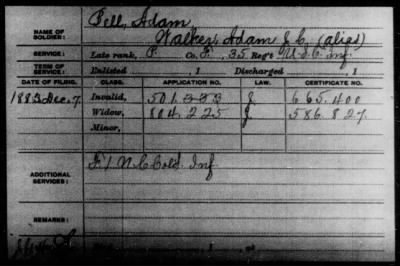 NAME OF SOLDIER: Pell, Adam
Walker, Adam J. C. (alias)
SERVICE: Late rank, P. Co. F, 35 Reg't U.S.C. Inf.
TERM OF SERVICE: Enlisted 1 Discharged , 1
DATE OF FILING. CLASS. APPLICATION NO. LAW. CERTIFICATE NO.
1883 Dec. 7 Invalid, 501.333 J. 665.400
Widow, 804.225 J. 586.827
Minor,
ADDITIONAL SERVICES: F 1 N C Cold. Inf
REMARKS: